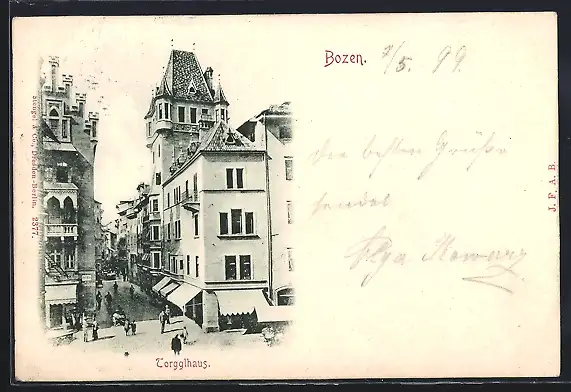 Bozen. 7/5. 99
die besten Grüße
sendet
Olga
Torgglhaus.
Stengel & Co., Dresden-Berlin. 2377.
J. F. A. B.